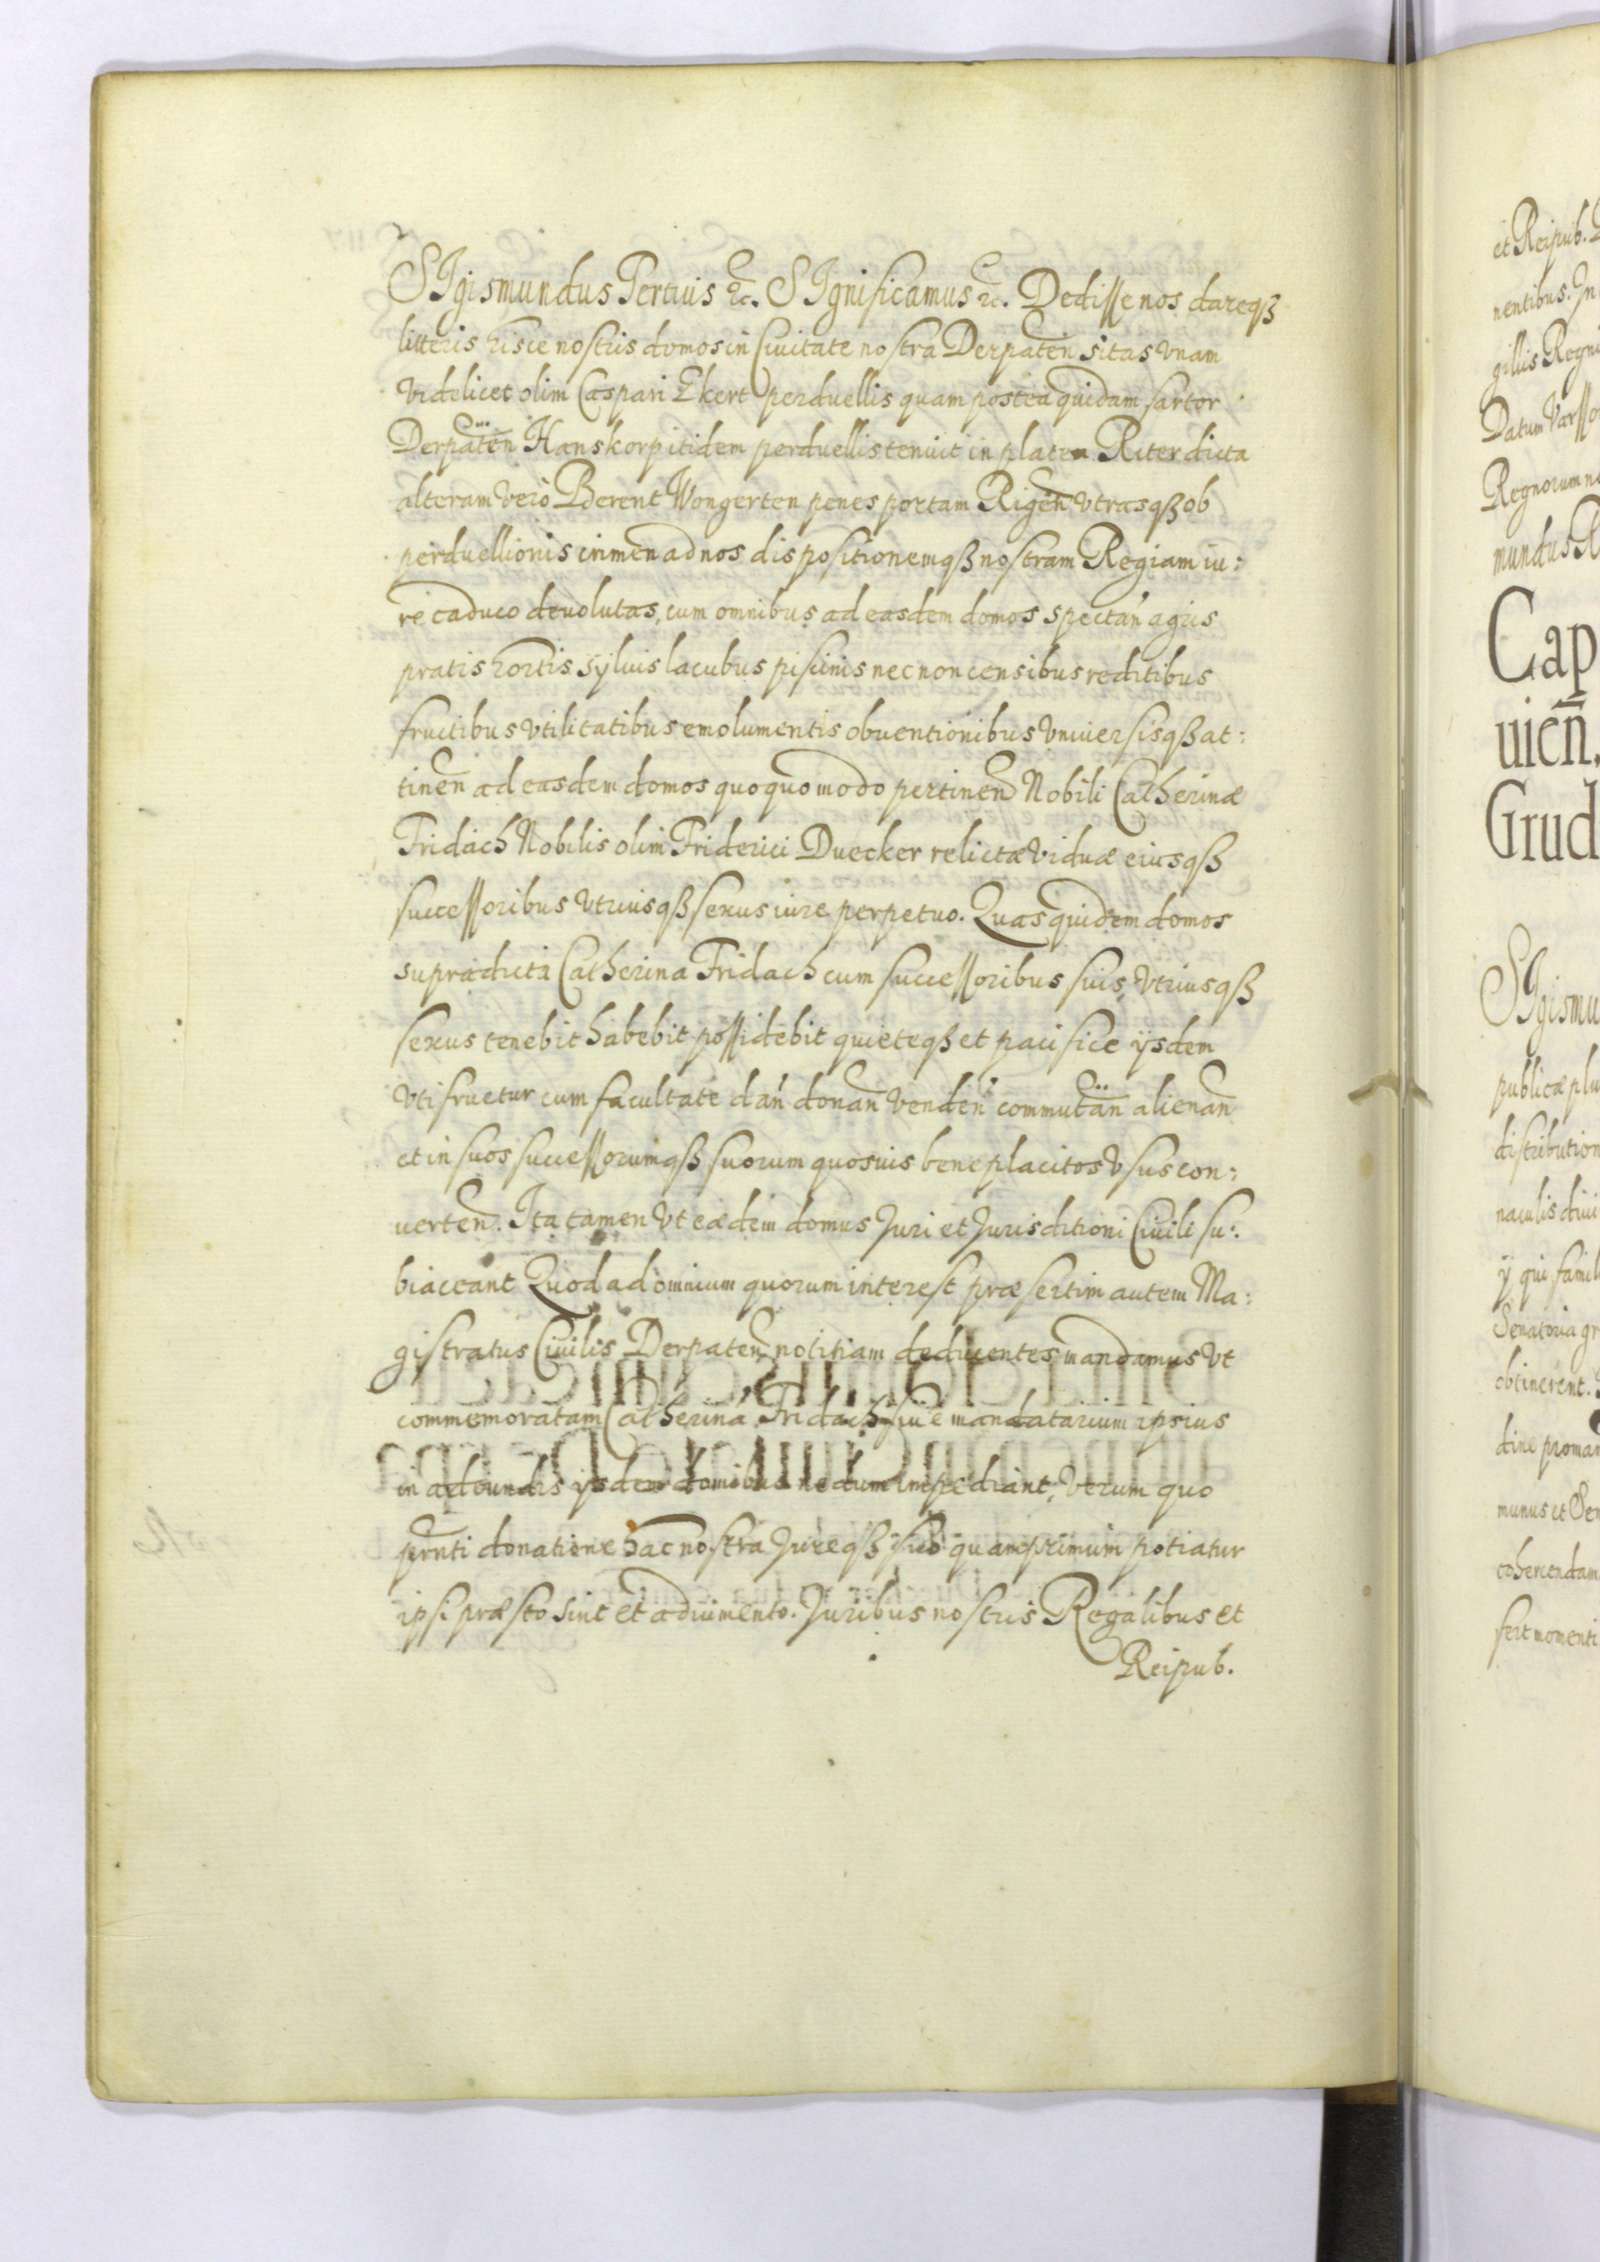 SIgismundus Tertius etc. SIgnificamus etc. Dedisse nos dareqȝ
litteris hisce nostris domos in Ciuitate nostra Derpateñ sitas vnam
videlicet olim Caspari Ekert perduellis quam postea quidam sartor
Derpateñ Hanskorp itidem perduellis tenuit in platea Riter dicta
alteram verò Berent Wongerten penes portam Rigeñ vtrasqȝ ob
perduellionis crimen ad nos dispositionemqȝ nostram Regiam iu:
re caduco deuolutas, cum omnibus ad easdem domos spectañ agris
pratis hortis syluis lacubus piscinis nec non censibus reditibus
fructibus vtilitatibus emolumentis obuentionibus vniuersisqȝ at:
tineñ ad easdem domos quoquomodo pertineñ Nobili Catherinæ
Fridach Nobilis olim Friderici Duecker relictæ viduæ eiusqȝ
successoribus vtriusqȝ sexus iure perpetuo. Quas quidem domos
supradicta Catherina Fridach cum successoribus suis vtriusqȝ
sexus tenebit habebit possidebit quieteqȝ et pacifice ysdem
vti fruetur cum facultate dañ donañ vendeñ commutañ alienañ
et in suos successorumqȝ suorum quosuis beneplacitos vsus con:
uerteñ. Ita tamen vt eædem domus Juri et Jurisditioni Ciuili su:
biaceant Quod ad omnium quorum interest præsertim autem Ma:
gistratus Ciuilis Derpateñ notitiam deducentes mandamus vt
commemoratam Catherinã Fridach siue mandatarium ipsius
in adeundis ysdem domibus nedum impediant, verum quo
prñti donatione hac nostra Jureqȝ suo quamprimum potiatur
ipsi præsto sint et adiumento. Juribus nostris Regalibus et
Reipub.
et Reipub.
nentibus. In
gillis Regni
Datum Varsso
Regnorum n
mundus
Cap
uieñ.
Grud
SIgismu
publicæ plu
distribution
naculis diui
y qui famil
Senatoria gr
obtinerent.
dine proman
munus et Sen
cohercendam
fert momenti